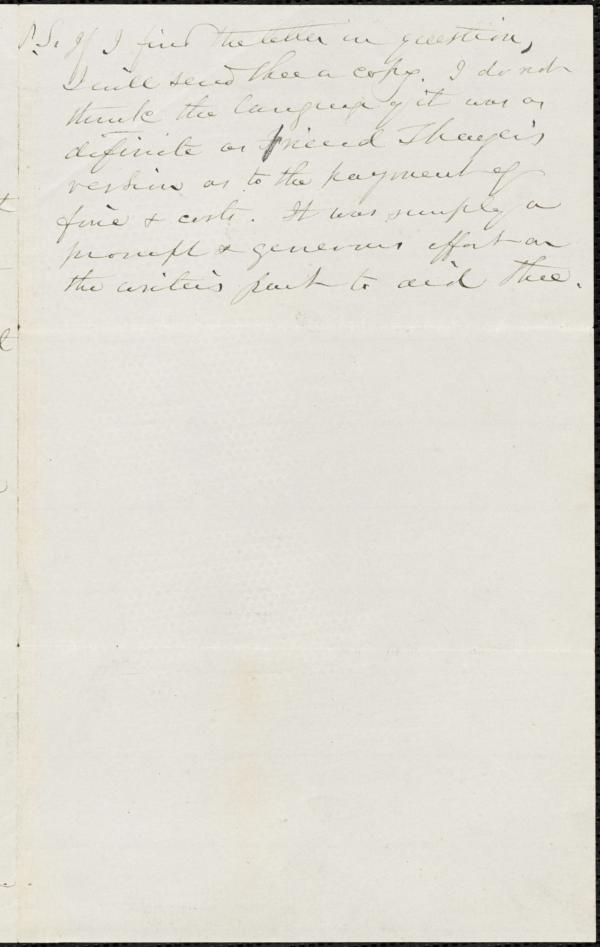 P.S. If I find the letter in question,
I will send thee a copy. I do not
think the language of it was as
definite as friend Thayer's
version as to the payment of
fine & costs. It was simply a
prompt & generous effort on
the writer's part to aid thee.